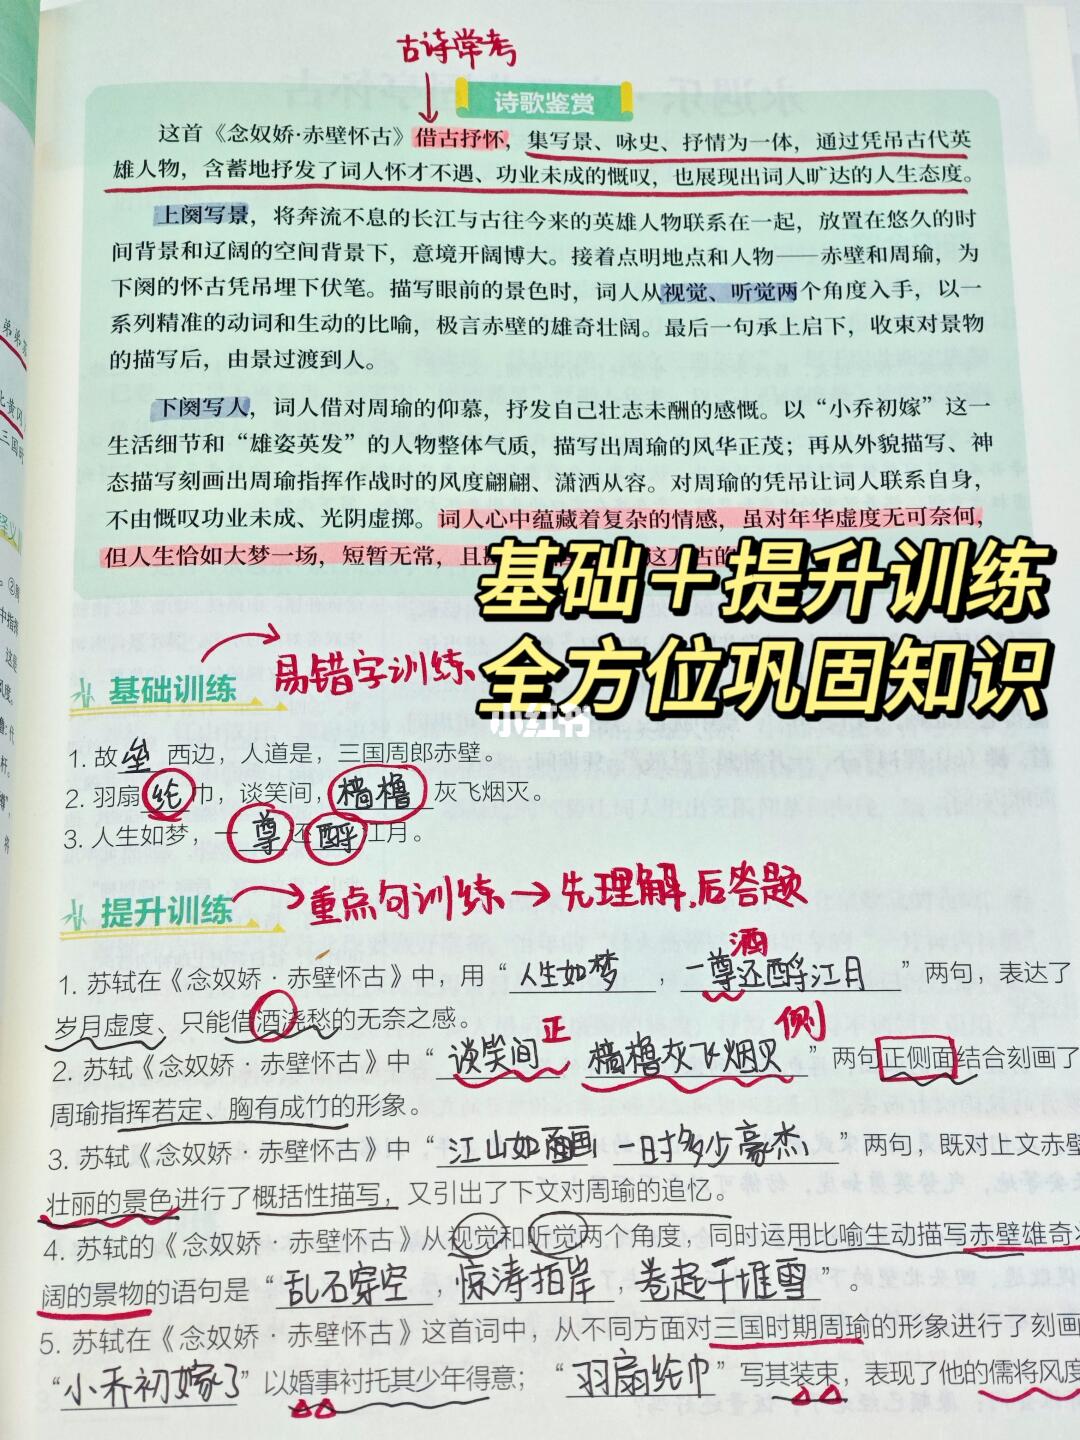 古诗常考
诗歌鉴赏
这首《念奴娇·赤壁怀古》借古抒怀，集写景、咏史、抒情为一体，通过凭吊古代英
雄人物，含蓄地抒发了词人怀才不遇、功业未成的慨叹，也展现出词人旷达的人生态度。
上阕写景，将奔流不息的长江与古往今来的英雄人物联系在一起，放置在悠久的时
间背景和辽阔的空间背景下，意境开阔博大。接着点明地点和人物——赤壁和周瑜，为
下阕的怀古凭吊埋下伏笔。描写眼前的景色时，词人从视觉、听觉两个角度入手，以一
系列精准的动词和生动的比喻，极言赤壁的雄奇壮阔。最后一句承上启下，收束对景物
的描写后，由景过渡到人。
下阕写人，词人借对周瑜的仰慕，抒发自己壮志未酬的感慨。以“小乔初嫁”这一
生活细节和“雄姿英发”的人物整体气质，描写出周瑜的风华正茂；再从外貌描写、神
态描写刻画出周瑜指挥作战时的风度翩翩、潇洒从容。对周瑜的凭吊让词人联系自身，
不由慨叹功业未成、光阴虚掷。词人心中蕴藏着复杂的情感，虽对年华虚度无可奈何，
但人生恰如大梦一场，短暂无常，且
基础+提升训练
全方位巩固知识
小红书
基础训练
易错字训练
1. 故垒西边，人道是，三国周郎赤壁。
2. 羽扇纶巾，谈笑间，樯橹灰飞烟灭。
3. 人生如梦，一尊还酹江月。
提升训练
重点句训练→先理解，后答题
酒
1. 苏轼在《念奴娇·赤壁怀古》中，用“人生如梦，一尊还酹江月”两句，表达了
岁月虚度、只能借酒浇愁的无奈之感。
正 侧
2. 苏轼《念奴娇·赤壁怀古》中“谈笑间 樯橹灰飞烟灭”两句正侧面结合刻画了
周瑜指挥若定、胸有成竹的形象。
3. 苏轼《念奴娇·赤壁怀古》中“江山如画 一时多少豪杰”两句，既对上文赤壁
壮丽的景色进行了概括性描写，又引出了下文对周瑜的追忆。
4. 苏轼的《念奴娇·赤壁怀古》从视觉和听觉两个角度，同时运用比喻生动描写赤壁雄奇
阔的景物的语句是“乱石穿空，惊涛拍岸，卷起千堆雪”。
5. 苏轼在《念奴娇·赤壁怀古》这首词中，从不同方面对三国时期周瑜的形象进行了刻画
“小乔初嫁了”以婚事衬托其少年得意；“羽扇纶巾”写其装束，表现了他的儒将风度